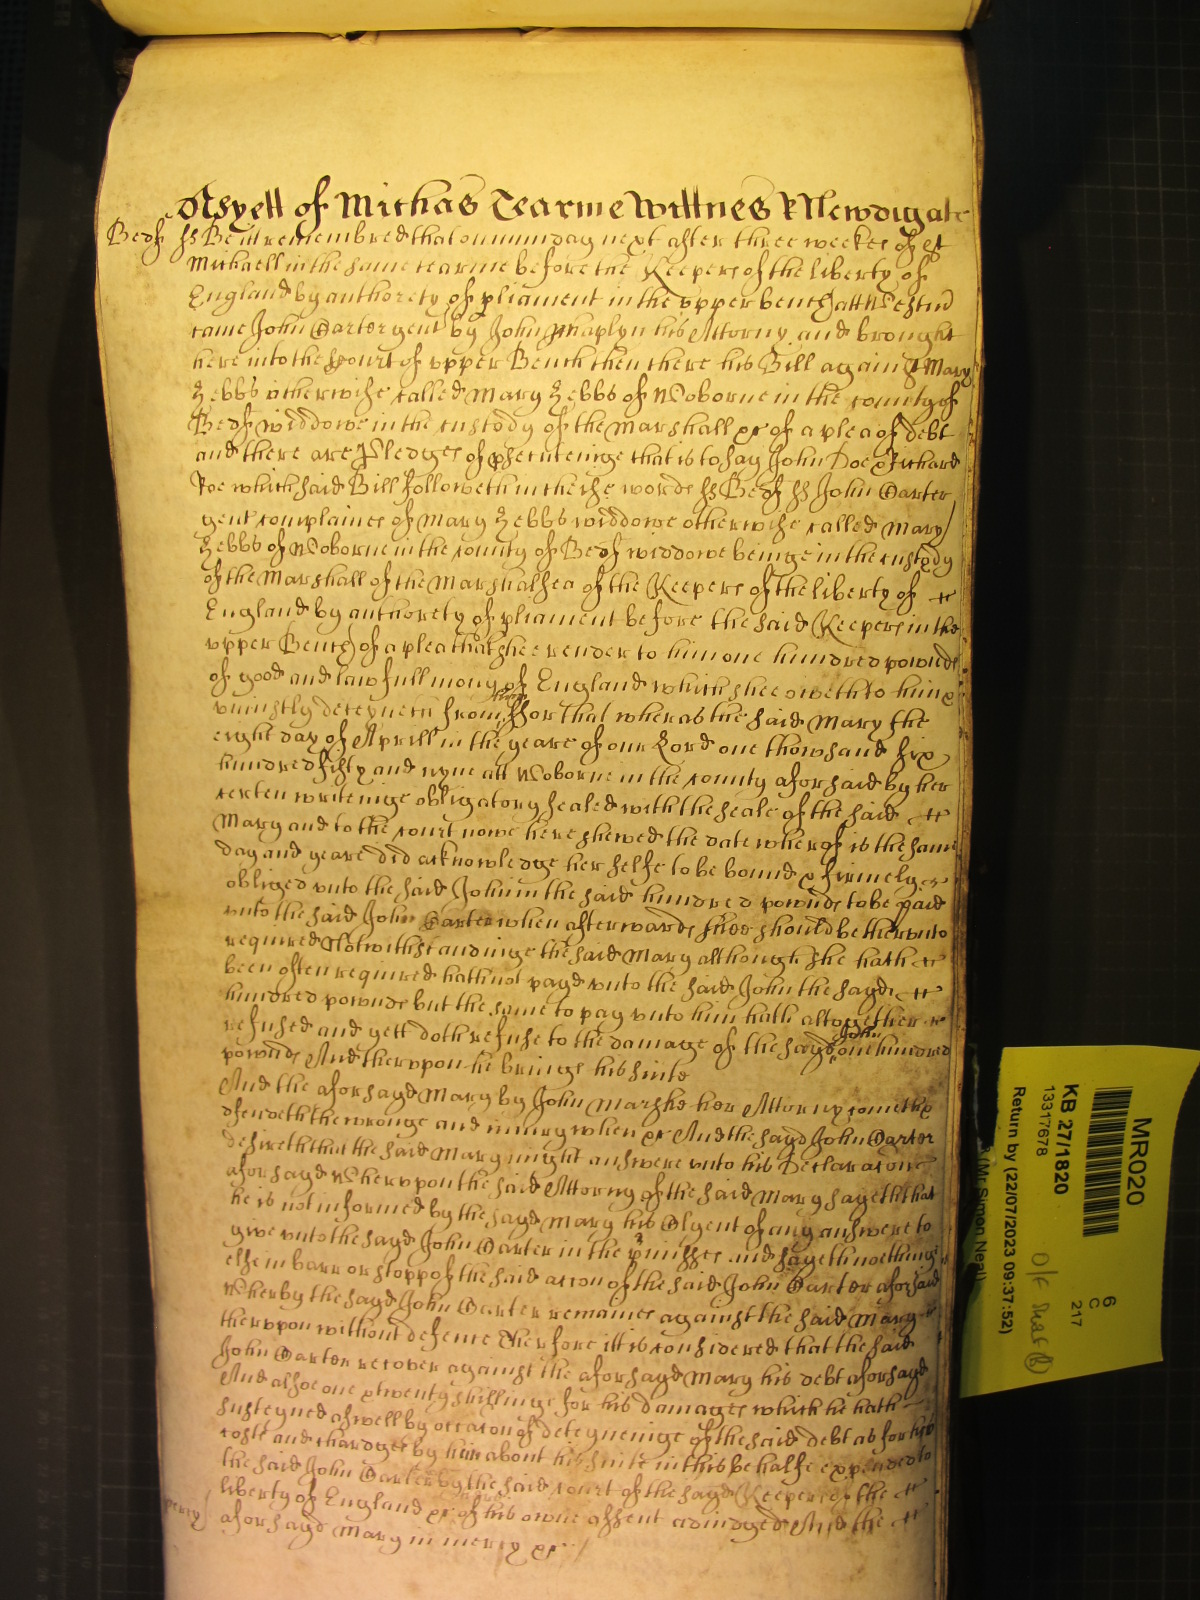 As yett of Michas Tearme Wittnes R Newdigate
Bedf ss Be it remembred that on munday next after three weekes of St
Michaell in the same tearme before the Keepers of the liberty of
England by authorety of pliament in the upper bench att Westm
came John Carter gent by John Chaplyn his Attorny and brought
here into the Court of upper Bench then there his Bill against Mary
Zebbs otherwise called Mary Zebbs of Woborne in the county of
Bedf widdowe in the custody of the Marshall &c of a plea of debt
and there are Pledges of psecuteinge that is to say John Doe & Richard
Roe which said Bill followeth in theise words ss Bedf ss John Carter
gent complaines of Mary Zebbs widdowe otherwise called Mary
Zebbs of Woborne in the county of Bedf widdowe beinge in the custody
of the Marshall of the Marshalsea of the Keepers of the liberty of
England by authorety of pliament before the said Keepers in the
upper Bench of a plea that shee render to him one hundred pownds
of good and lawfull mony of England which shee oweth to him &
uniustly deteyneth from him ffor that wheras the said Mary the
eight day of Aprill in the yeare of our Lord one thowsand six
hundred fifty and nyne att Woborne in the county aforsaid by her
certen writeinge obligatory sealed with the seale of the said
Mary and to the court nowe here shewed the date wherof is the same
day and yeare did acknowledge her selfe to be bound & firmely
obliged unto the said John in the said hundred pownds to be paid
unto the said John Carter when afterwards shee should be therunto
required Notwithstandinge the said Mary although she hath
been often required hath not payd unto the said John the sayd
hundred pownds but the same to pay unto him hath altogether
refused and yett doth refuse to the damage of the sayd John one hundred
pownds And therupon he brings his suite
And the aforsayd Mary by John Marshe her Attorny cometh &
defendeth the wronge and iniury when &c And the sayd John Carter
desireth that the said Mary might answere unto his Declaracone
aforsayd Wherupon the said Attorny of the said Mary sayeth that
he is not informed by the sayd Mary his Clyent of any answere to
give unto the sayd John Carter in the pmisses and sayeth noethinge
else in barr or stopp of the said accon of the said John Carter aforsaid
Wherby the sayd John Carter remaines against the said Mary
therupon without defence Therfore itt is considered that the said
John Carter recover against the aforsayd Mary his debt aforsayd
And alsoe one & twenty shillings for his damages which he hath
susteyned aswell by occacon of deteyneinge of the said debt as for his
costs and chardges by him about his suite in this behalfe expended to
the said John Carter by the said court of the sayd Keepers of the
liberty of England &c of his owne assent adiudged And the
mercy aforsayd Mary in mercy &c
MR020
KB 27/1820
13317678
Return by (22/07/2023 09:37:52)
(Mr Simon Neal)
6
C
217